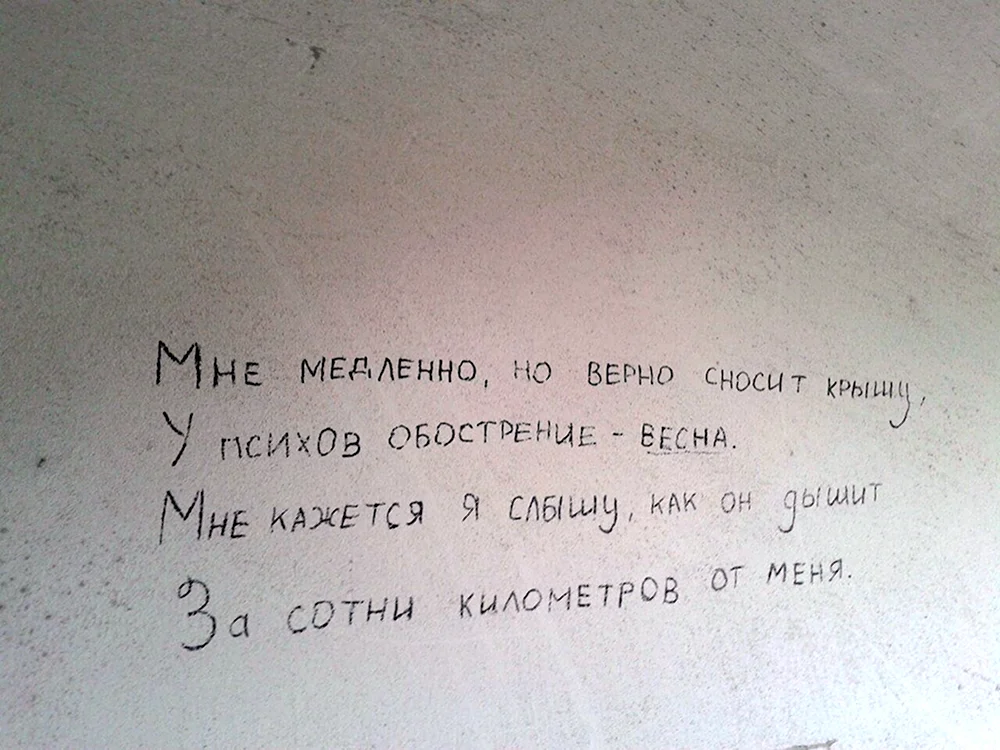 Мне медленно, но верно сносит крышу,
У психов обострение - весна.
Мне кажется я слышу, как он дышит
За сотни километров от меня.